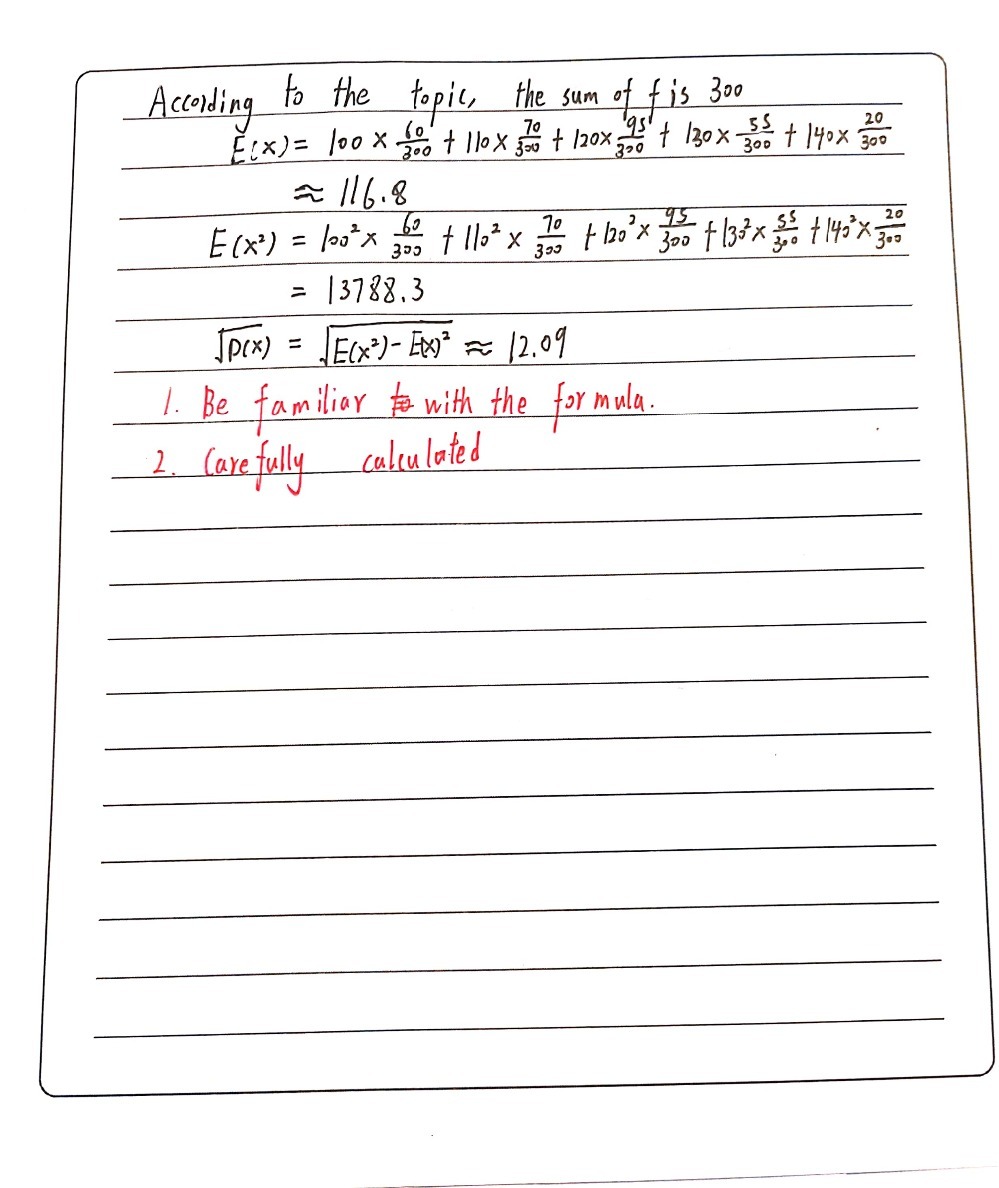 According to the topic, the sum of f is 300
E(x) = 100 × 60/300 + 110 × 70/300 + 120 × 95/300 + 130 × 55/300 + 140 × 20/300
≈ 116.8
E(x²) = 100² × 60/300 + 110² × 70/300 + 120² × 95/300 + 130² × 55/300 + 140² × 20/300
= 13788.3
√D(x) = √E(x²) - E(x)² ≈ 12.09
1. Be familiar with the formula.
2. Carefully calculated